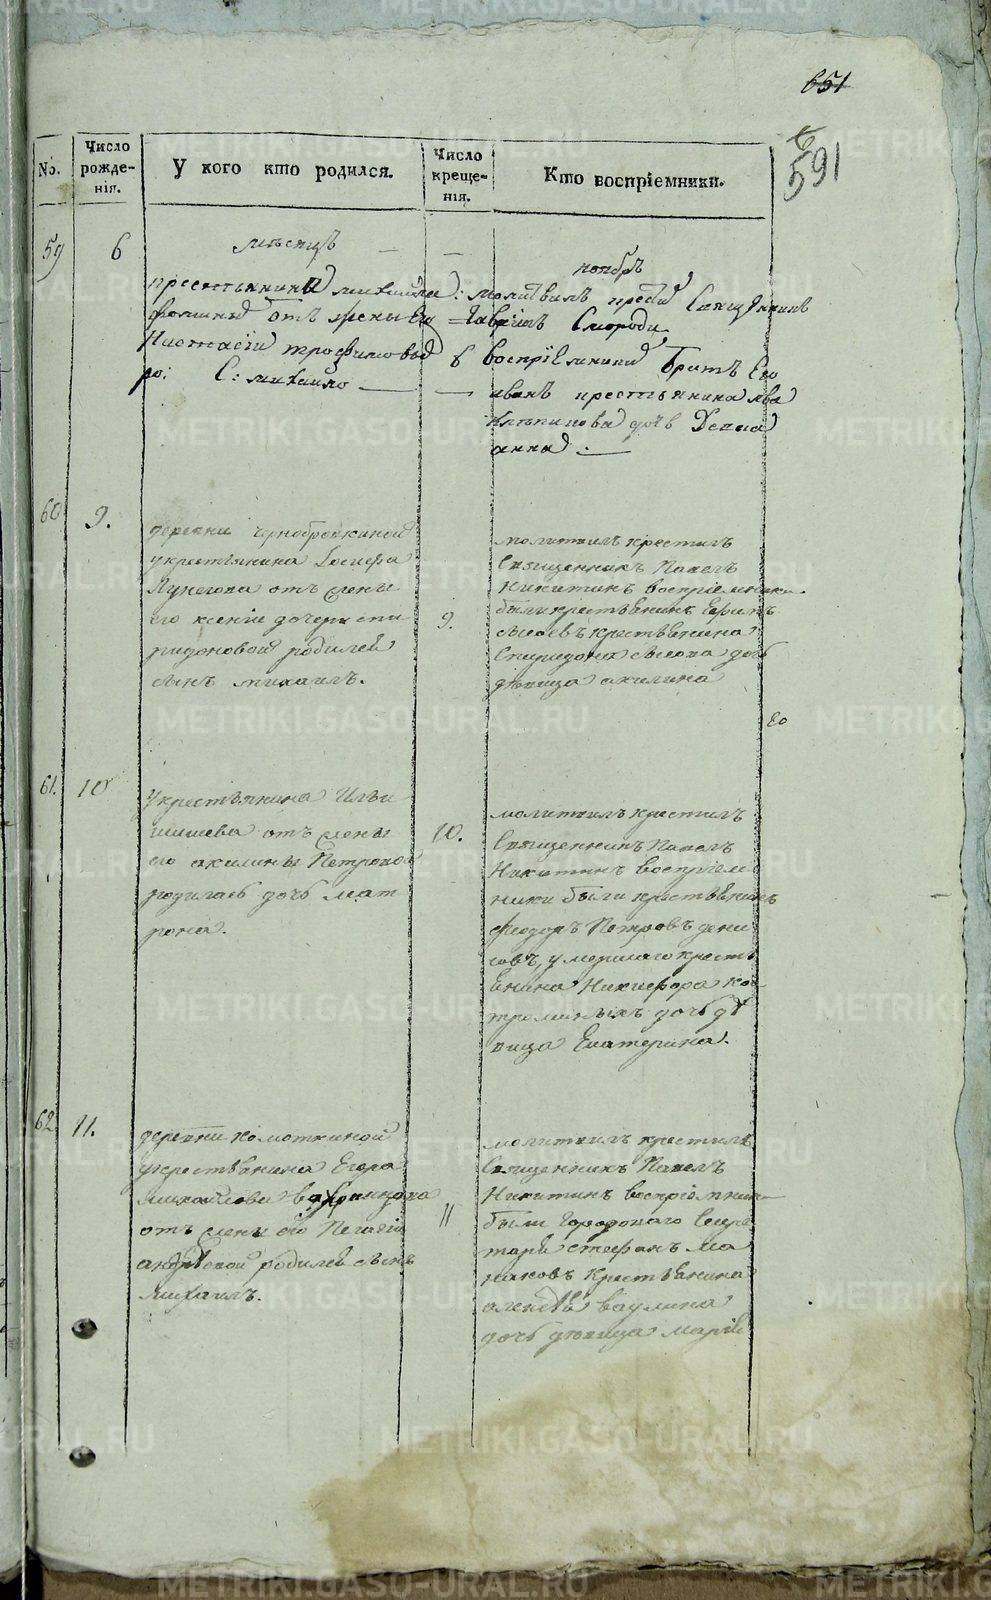 651
591
No.
Число рожде-нія.
У кого кто родился.
Число креще-нія.
Кто воспріемники.
59
6
мѣсяцъ
ноябрь
крестьянина михайла
фомина отъ жены Его
Настасіи трофимовы
ро: С: михайло
6
молитвилъ крести Священникъ
Гаврілъ Смороди
воспріемники братъ Его
иванъ крестьянина
дочь
анна
60
9.
деревни чернобровкиной
у крестьянина Іосифа
Лунегова отъ жены
его ксеніи дочери спи
ридоновой родился
сынъ михаилъ.
9.
молитвилъ крестилъ
Священникъ Павелъ
Никитинъ воспріемники
были крестьянинъ Ефимъ
сысоевъ крестьянина
Спиридона сысоева дочь
дѣвица акилина
Ео
61.
10
у крестьянина Ильи
шишева отъ жены
его акилины Петровой
родилась дочь мат
рона.
10.
молитвилъ крестилъ
Священникъ Павелъ
Никитинъ воспріем
ники были крестьянинъ
феодоръ Петровъ дени
совъ, умершаго кресть
янина Никифора ко
троминыхъ дочь дѣ
вица Екатерина.
62
11.
деревни комоткиной
у крестьянина Егора
михайлова
отъ жены его Пелагіи
андреевой родился сынъ
михаилъ.
11
молитвилъ крестилъ
Священникъ Павелъ
Никитинъ воспріемники
были городоваго секре
тарь стефанъ ма
наковъ крестьянина
алексея ваулина
дочь дѣвица марія
METRIKI.GASO-URAL.RU